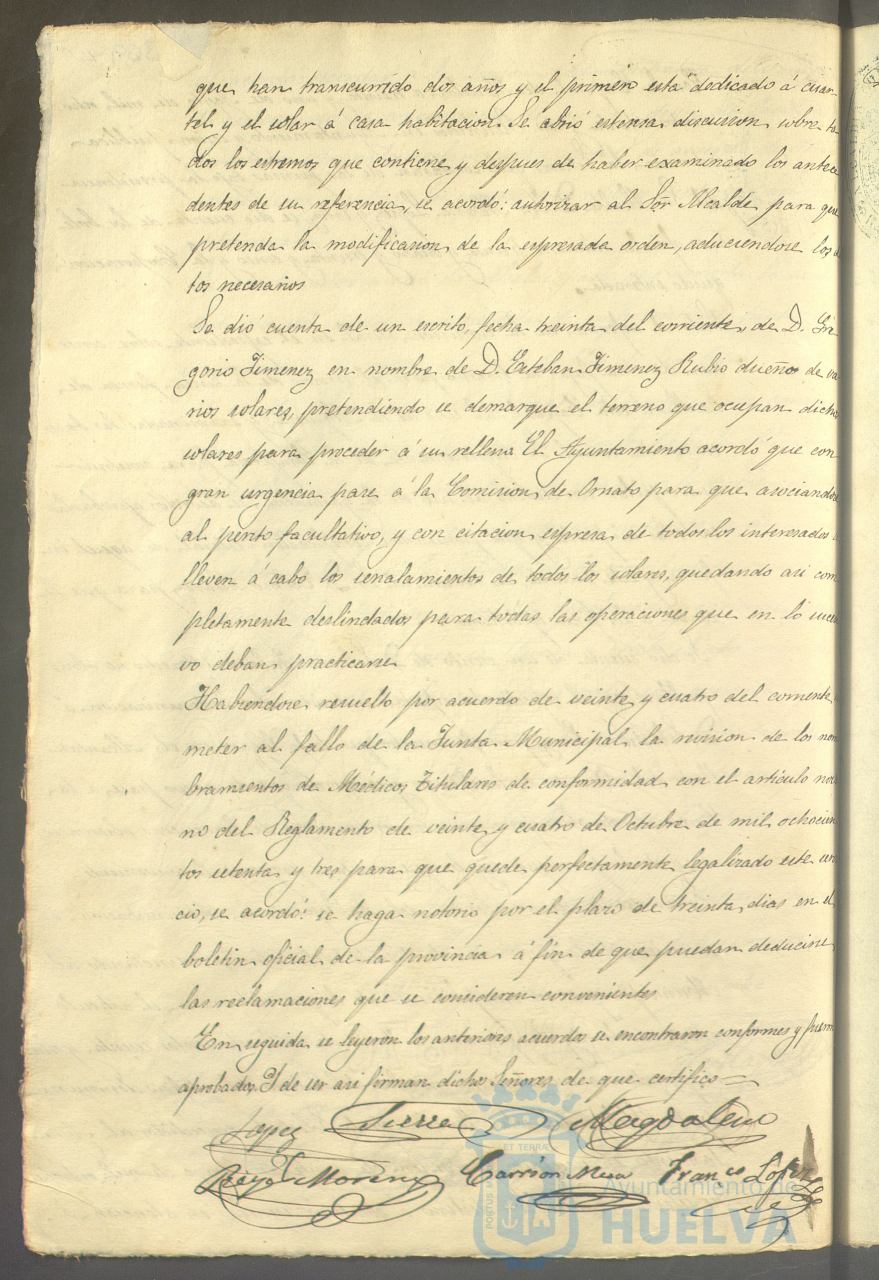 que han transcurrido dos años y el primero está dedicado á cuar-
tel y el solar á casa habitacion. Se abrió estensa discusion sobre to
dos los estremos que contiene y despues de haber examinado los antece
dentes de su referencia, se acordó: autorizar al Sor Alcalde para que
pretenda la modificasion de la espresada orden, aduciendose los
tos necesarios
Se dió cuenta de un escrito, fecha treinta del corriente, de D. Gre
gorio Jimenez en nombre de D. Esteban Jimenez Rubio dueño de va
rios solares, pretendiendo se demarque el terreno que ocupan dichos
solares para proceder á su rellena El Ayuntamiento acordó que con
gran urgencia pase á la Comision de Ornato para que asociandose
al perito facultativo, y con citacion espresa de todos los interesados
lleven á cabo los señalamientos de todos los solares, quedando asi com
pletamente deslindados para todas las operaciones que en lo sucesi
vo deban practicarse
Habiendose resuelto por acuerdo de veinte y cuatro del corriente,
meter al fallo de la Junta Municipal la revision de los nom
bramientos de Médicos Titulares de conformidad con el artículo no
no del Reglamento de veinte y cuatro de Octubre de mil ochocien
tos setenta y tres para que quede perfectamente legalizado este servi
cio, se acordó: se haga notorio por el plazo de treinta dias en el
boletin oficial de la provincia á fin de que puedan deducirse
las reclamaciones que se consideren convenientes
En seguida se leyeron los anteriores acuerdos se encontraron conformes y fueron
aprobados. Y de ser asi firman dichos Señores de que certifico =
Lopez Sierra Magdalena
Reyes Moreno Carrión Mesa Franco Lopez
ET TERRÆ
PORTUS
Ayuntamiento de
HUELVA